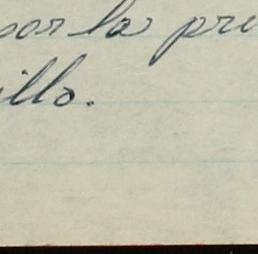 por la pri
illo.